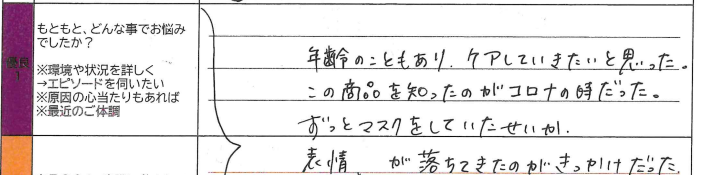 もともと、どんな事でお悩み
でしたか？
優良
1
※環境や状況を詳しく
→エピソードを伺いたい
※原因の心当たりもあれば
※最近のご体調
年齢のこともあり、ケアしていきたいと思った。
この商品を知ったのがコロナの時だった。
ずっとマスクをしていたせいか、
表情、が落ちてきたのがきっかけだった。